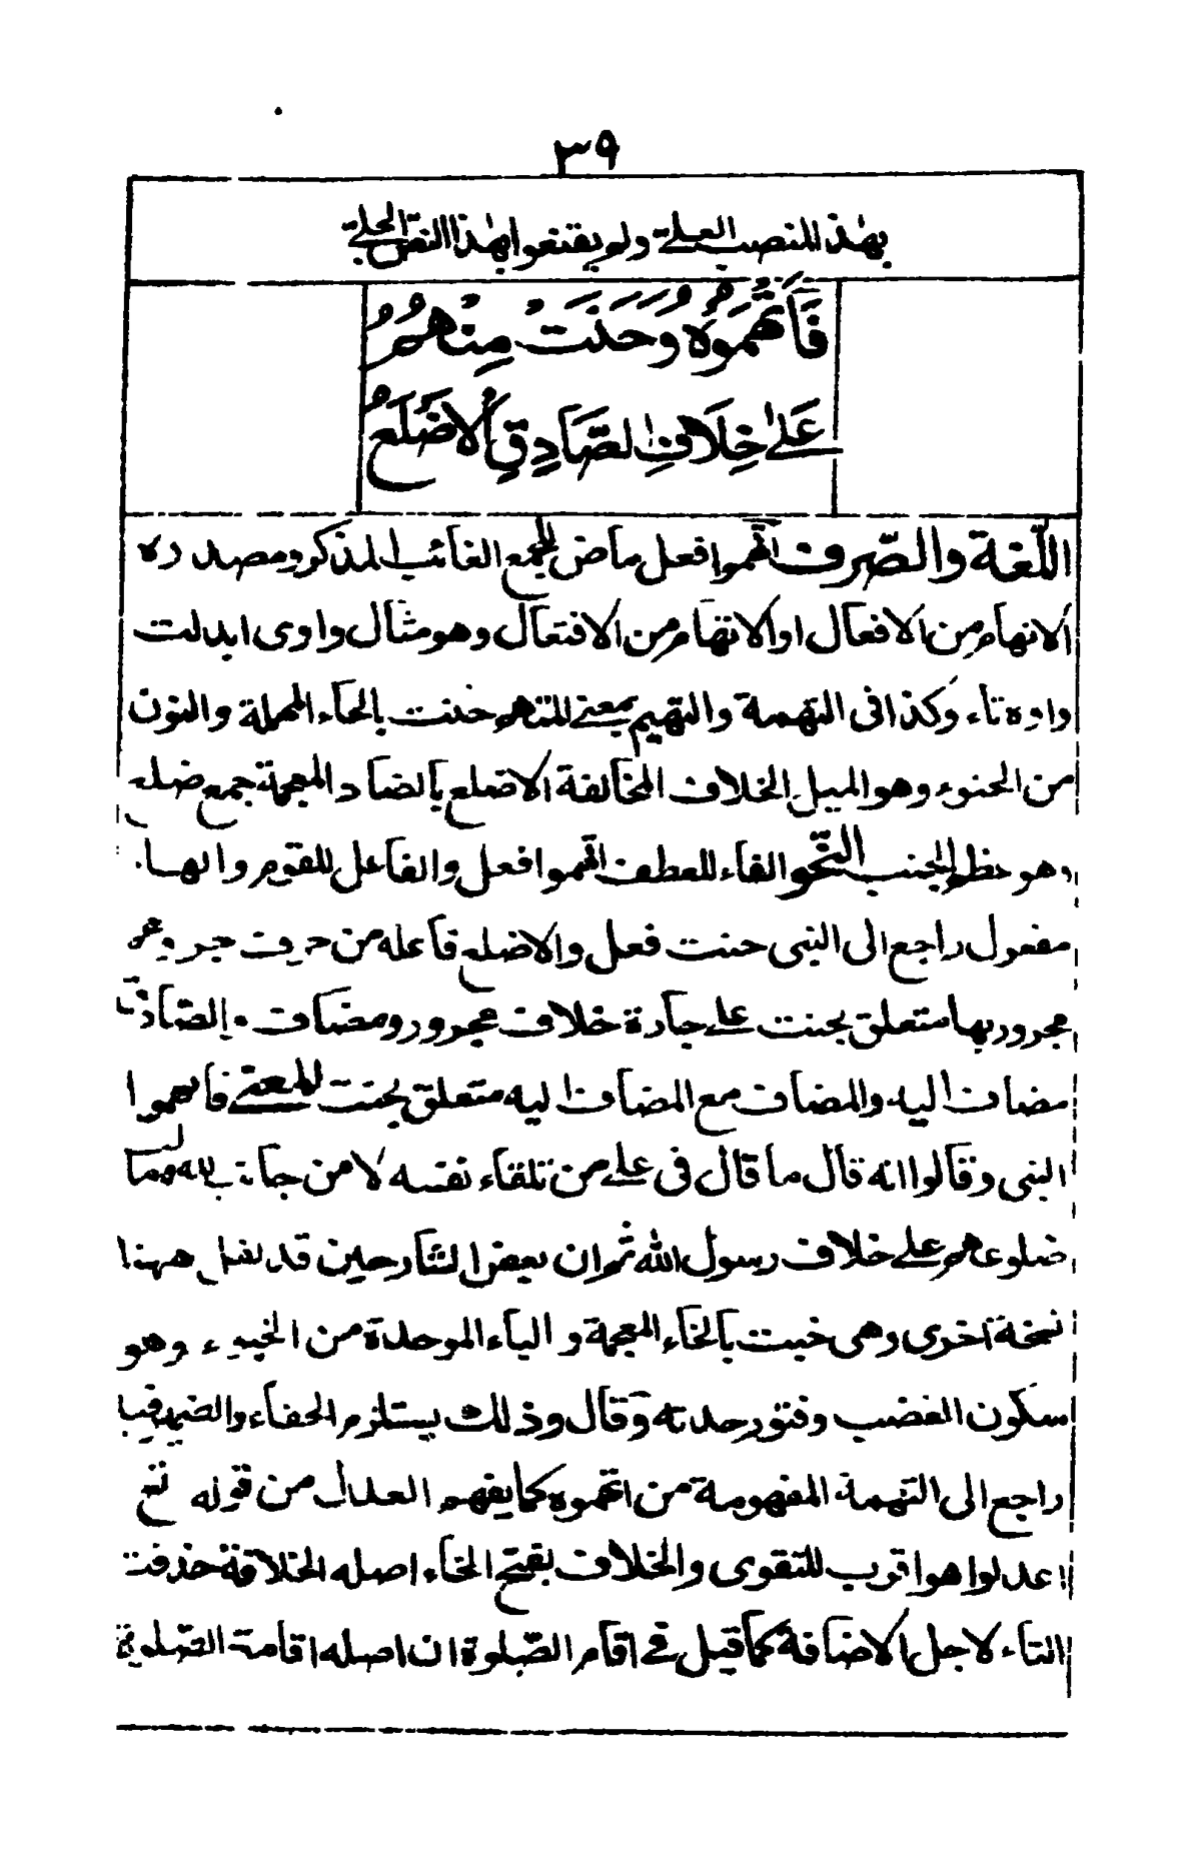 ٣٩
بهذا المنصب العلى ولم يقنعوا بهذا النص الجلى
فَاَتْهَمُوْهُ وَحَنَتْ مِنْهُمُ
عَلىٰ خِلَافِ الصَّادِقِ الْاَضْلُعُ
اللّغة والصّرف اتهموا فعل ماض لجمع الغائب المذكر ومصدره
الاتهام من الافعال او الاتهام من الافتعال وهو مثال واوى ابدلت
واوه تاء وكذا فى التهمة والتهيم بمعنى المتهم حنت بالحاء المهملة والنون
من الحنوء وهو الميل الخلاف المخالفة الاضلع بالضاد المعجمة جمع ضلع
وهو عظم الجنب النّحو الفاء للعطف اتهموا فعل والفاعل للقوم والهاء
مفعول راجع الى النبى حنت فعل والاضلع فاعله من حرف جر وهم
مجرور بها متعلق بحنت على جارة خلاف مجرور ومضاف والصّادق
مضاف اليه والمضاف مع المضاف اليه متعلق بحنت المعنى فاتهموا
النبى وقالوا انه قال ما قال فى على من تلقاء نفسه لا من جانب الله ومالت
ضلوعهم على خلاف رسول الله ثم ان بعض الشارحين قد نقل ههنا
نسخة اخرى وهى خبت بالخاء المعجمة و الباء الموحدة من الخبوء وهو
سكون الغضب وفتور حدته وقال وذلك يستلزم الخفاء والضمير فيها
راجع الى التهمة المفهومة من اتهموه كما يفهم العدل من قوله تع
اعدلوا هو اقرب للتقوى والخلاف بفتح الخاء اصله الخلافة حذفت
التاء لاجل الاضافة كما قيل فى اقام الصّلوة ان اصله اقامة الصّلوة